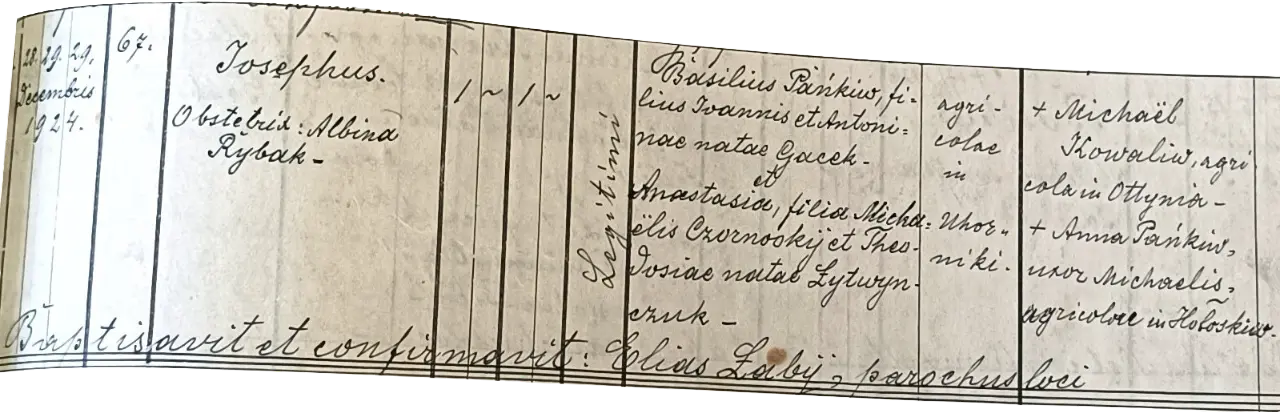 28. 29. 29.
Decembris
1924.
67.
Josephus.
Obstetrix: Albina
Rybak -
1 ~ 1 ~
Legitimi
Basilius Pańkiw, fi-
lius Ioannis et Antoni=
nae natae Gacek -
et
Anastasia, filia Micha=
ëlis Czornookij et Theo-
dosiae natae Łytwyn-
czuk -
agri-
colae
in
Uhor-
niki.
+ Michaël
Kowaliw, agri
cola in Ottynia -
+ Anna Pańkiw,
uxor Michaelis,
agricolae in Hołoskiw.
Baptisavit et confirmavit: Elias Żabij, parochus loci